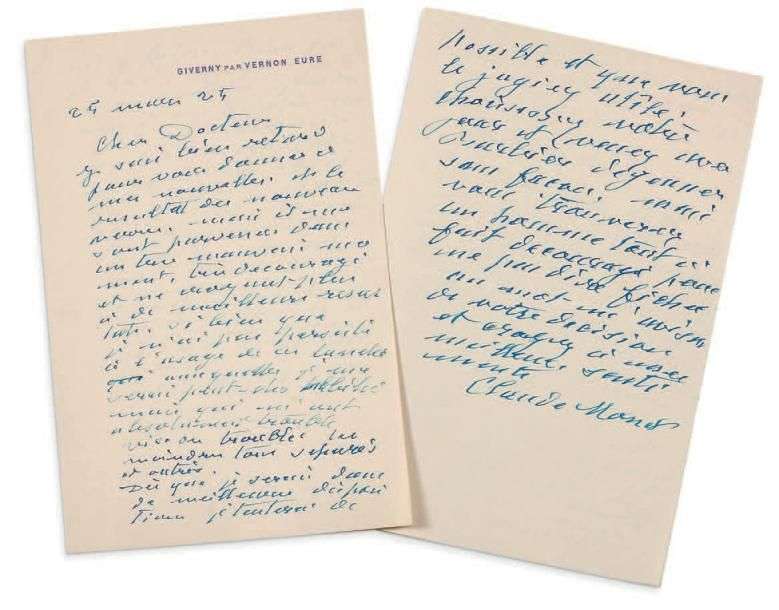 GIVERNY PAR VERNON EURE
25 mars 25
Cher Docteur
je suis bien en retard
pour vous donner de
mes nouvelles et le
résultat des nouveaux
verres. mais ils me
sont parvenus dans
un très mauvais mo
ment, très découragé
et ne croyant plus
à de meilleurs résul
tats. si bien que
je n'ai pas persisté
à l'usage de ces lunettes
auxquelles je me
serais peut-être habitué
mais qui m'ont
absolument troublé
vision troublée les
moindres tons séparés
et outrés.
Dès que je serai dans
de meilleures disposi
tions je tenterai de
possible et que vous
le jugiez utile.
choisissez votre
jour et venez me
déjeuner
sans façons, mais
vous trouverez
un homme tout à
fait découragé pour
ne pas dire fichu
un mot me
de votre décision
et croyez à mes
meilleurs senti
ments
Claude Monet